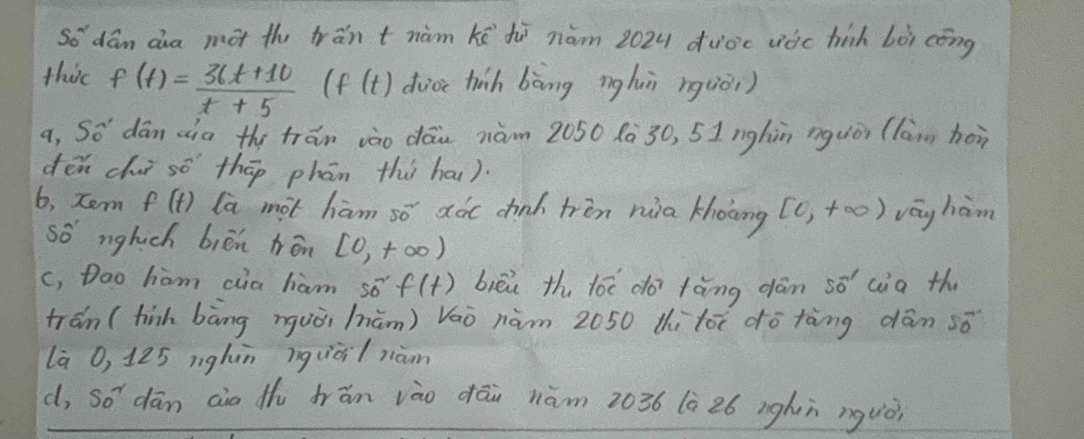 Số dân của một thị trấn t năm kể từ năm 2024 được ước tính bởi công
thức f(t) = \frac{36t+10}{t+5} (f(t) được tính bằng nghìn người)
a, Số dân của thị trấn vào đầu năm 2050 là 30,51 nghìn người (làm tròn
đến chữ số thập phân thứ hai).
b, Xem f(t) là một hàm số xác định trên nửa khoảng [0, +∞) vậy hàm
số nghịch biến trên [0, +∞)
c, Đạo hàm của hàm số f(t) biểu thị tốc độ tăng dân số của thị
trấn (tính bằng người/năm) Vào năm 2050 thì tốc độ tăng dân số
là 0,125 nghìn người/năm
d, Số dân của thị trấn vào đầu năm 2036 là 26 nghìn người